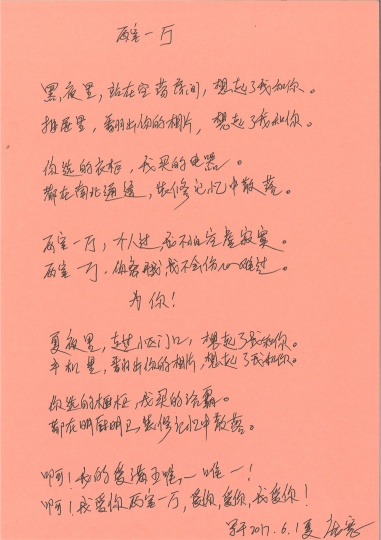 两室一厅
黑夜里，站在空荡房间，想起了我和你。
抽屉里，翻出你的相片，想起了我和你。
你选的衣柜，我买的电器。
都在南北通透，装修记忆中散落。
两室一厅，个人过，忍不住空虚寂寞。
两室一厅，你容我我不会伤心难过。
为你！
夏夜里，走过小区门口，想起了我和你。
手机里，翻出你的相片，想起了我和你。
你选的橱柜，我买的浴霸。
都在明厨明卫，装修记忆中散落。
啊！我的爱满五唯一唯一！
啊！我爱你两室一厅，爱你，爱你，我爱你！
写于2017.6.1夏